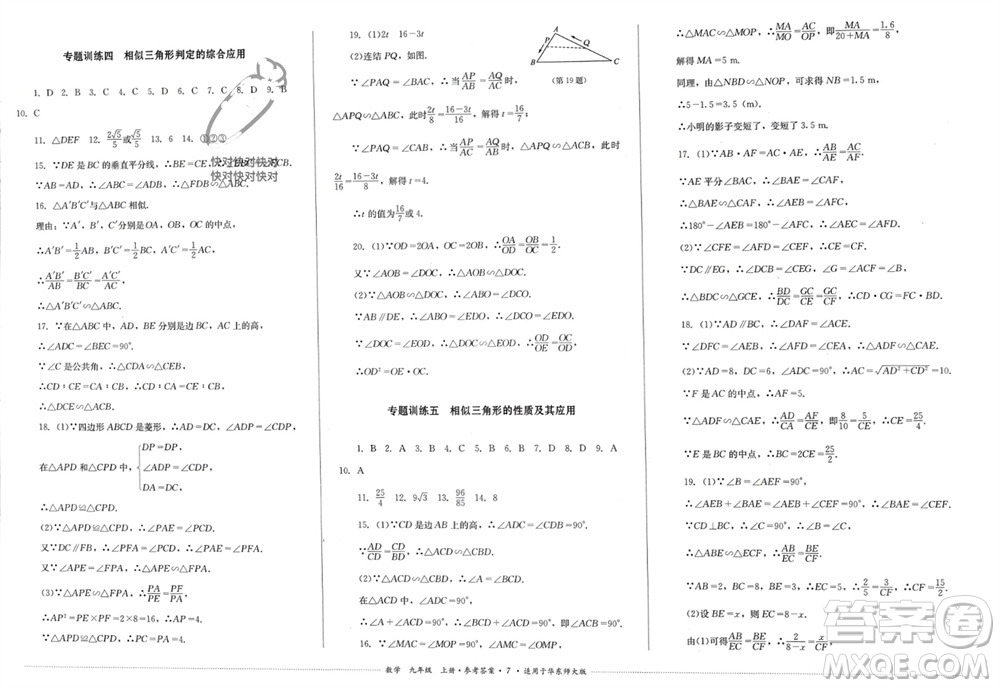 专题训练四 相似三角形判定的综合应用
1. D 2. B 3. B 4. C 5. B 6. C 7. C 8. D 9. B
10. C
11. △DEF 12. 2√5/5或√5/5 13. 6 14. ①②③
15. ∵DE是BC的垂直平分线,∴BE=CE.
快对快对快对
快对快对快对
∵AB=AD,∴∠ABC=∠ADB,∴△FDB∽△ABC.
16. △A′B′C′与△ABC相似.
理由:∵A′,B′,C′分别是OA,OB,OC的中点,
∴A′B′=1/2AB,B′C′=1/2BC,A′C′=1/2AC,
∴A′B′/AB=B′C′/BC=A′C′/AC,
∴△A′B′C′∽△ABC.
17. ∵在△ABC中,AD,BE分别是边上的高,
∴∠ADC=∠BEC=90°.
∵∠C是公共角,∴△CDA∽△CEB,
∴CD∶CE=CA∶CB,∴CD∶CA=CE∶CB,
∴△DCE∽△ACB.
18. (1)∵四边形ABCD是菱形,∴DA=DC.
在△APD和△CPD中,{DP=DP,∠ADP=∠CDP,DA=DC,
∴△APD≌△CPD.
(2)∵△APD≌△CPD,∴∠DAP=∠DCP.
又∵DC∥FB,∴∠F=∠DCP,∴∠F=∠DAP.
又∵∠APE=∠FPA,∴△APE∽△FPA.
(3)∵△APE∽△FPA,∴AP/FP=PE/PA,
∴AP²=PE×PF=2×8=16,∴AP=4.
又∵△APD≌△CPD,∴PC=AP=4.
19. (1)2t 16-3t
(2)连结PQ,如图.
A P Q B C
(第19题)
∵∠PAQ=∠BAC,∴当AP/AB=AQ/AC时,
△APQ∽△ABC,此时2t/8=(16-3t)/16,解得t=16/7;
当AP/AC=AQ/AB时,△APQ∽△ACB,此时
2t/16=(16-3t)/8,解得t=4.
∴t的值为16/7或4.
20. (1)∵OD=2OA,OC=2OB,∴OA/OD=OB/OC=1/2.
又∵∠AOB=∠DOC,∴△AOB∽△DOC.
(2)由(1),得△AOB∽△DOC,∴∠A=∠D.
∵∠ABO=∠EDO,∴∠DCO=∠EDO.
又∵∠DOC=∠EOD,∴△DOC∽△EOD,∴OD/OE=OC/OD,
∴OD²=OC·OE.
专题训练五 相似三角形的性质及其应用
1. B 2. A 3. B 4. D 5. C 6. D 7. B 8. B 9. A
10. A
11. 25/4 12. 9√3 13. 96/85 14. 8
15. (1)∵CD是边AB上的高,∴∠ADC=∠CDB=90°.
又∵AD/CD=CD/BD,∴△ACD∽△CBD.
(2)∵△ACD∽△CBD,∴∠A=∠BCD.
在△ACD中,∵∠ADC=90°,
∴∠A+∠ACD=90°,∴∠BCD+∠ACD=90°,即∠ACB=90°.
16. ∵∠MAC=∠MOP=90°,∠AMC=∠OMP,
∴△MAC∽△MOP,∴MA/MO=AC/OP,即MA/(20+MA)=1.6/8,
解得MA=5 m.
同理,由△NBD∽△NOP,可求得NB=1.5 m,
∴5-1.5=3.5(m).
∴小明的影子变短了,变短了3.5 m.
17. (1)∵AB·AF=AC·AE,∴AB/AC=AE/AF.
∵AE平分∠BAC,∴∠BAE=∠CAF,
∴△BAE∽△CAF,∴∠AEB=∠AFC,
∴180°-∠AEB=180°-∠AFC,∴∠CEF=∠CFE,∴CE=CF.
(2)∵∠CFE=∠AFD=∠CEF,
∵DC∥EG,∴∠G=∠DCB.
18. (1)∵AD∥BC,∴∠DAF=∠ACE.
∵∠DFC=∠AEB,∴∠AFD=∠AEC,∴△ADF∽△CAE.
(2)∵AD=8,DC=6,∠ADC=90°,∴AC=√(AD²+CD²)=10.
∵F是AC的中点,∴AF=5.
∵△ADF∽△CAE,∴AD/CA=AF/CE,∴8/10=5/CE,∴CE=25/4.
∵E是BC的中点,∴BC=2CE=25/2.
19. (1)∵∠B=∠AEF=90°,
∴∠AEB+∠FEC=90°,∠AEB+∠BAE=90°,∴∠BAE=∠FEC.
∵CD⊥BC,∴∠ECF=90°,
∴△ABE∽△ECF,∴AB/EC=BE/CF.
∵AB=2,BC=8,BE=3,∴EC=5,∴2/5=3/CF,∴CF=15/2.
(2)设BE=x,则EC=8-x.
由(1)可得AB/EC=BE/CF,
数学 九年级 上册·参考答案·7·适用于华东师大版
答案圈
MXQE.COM